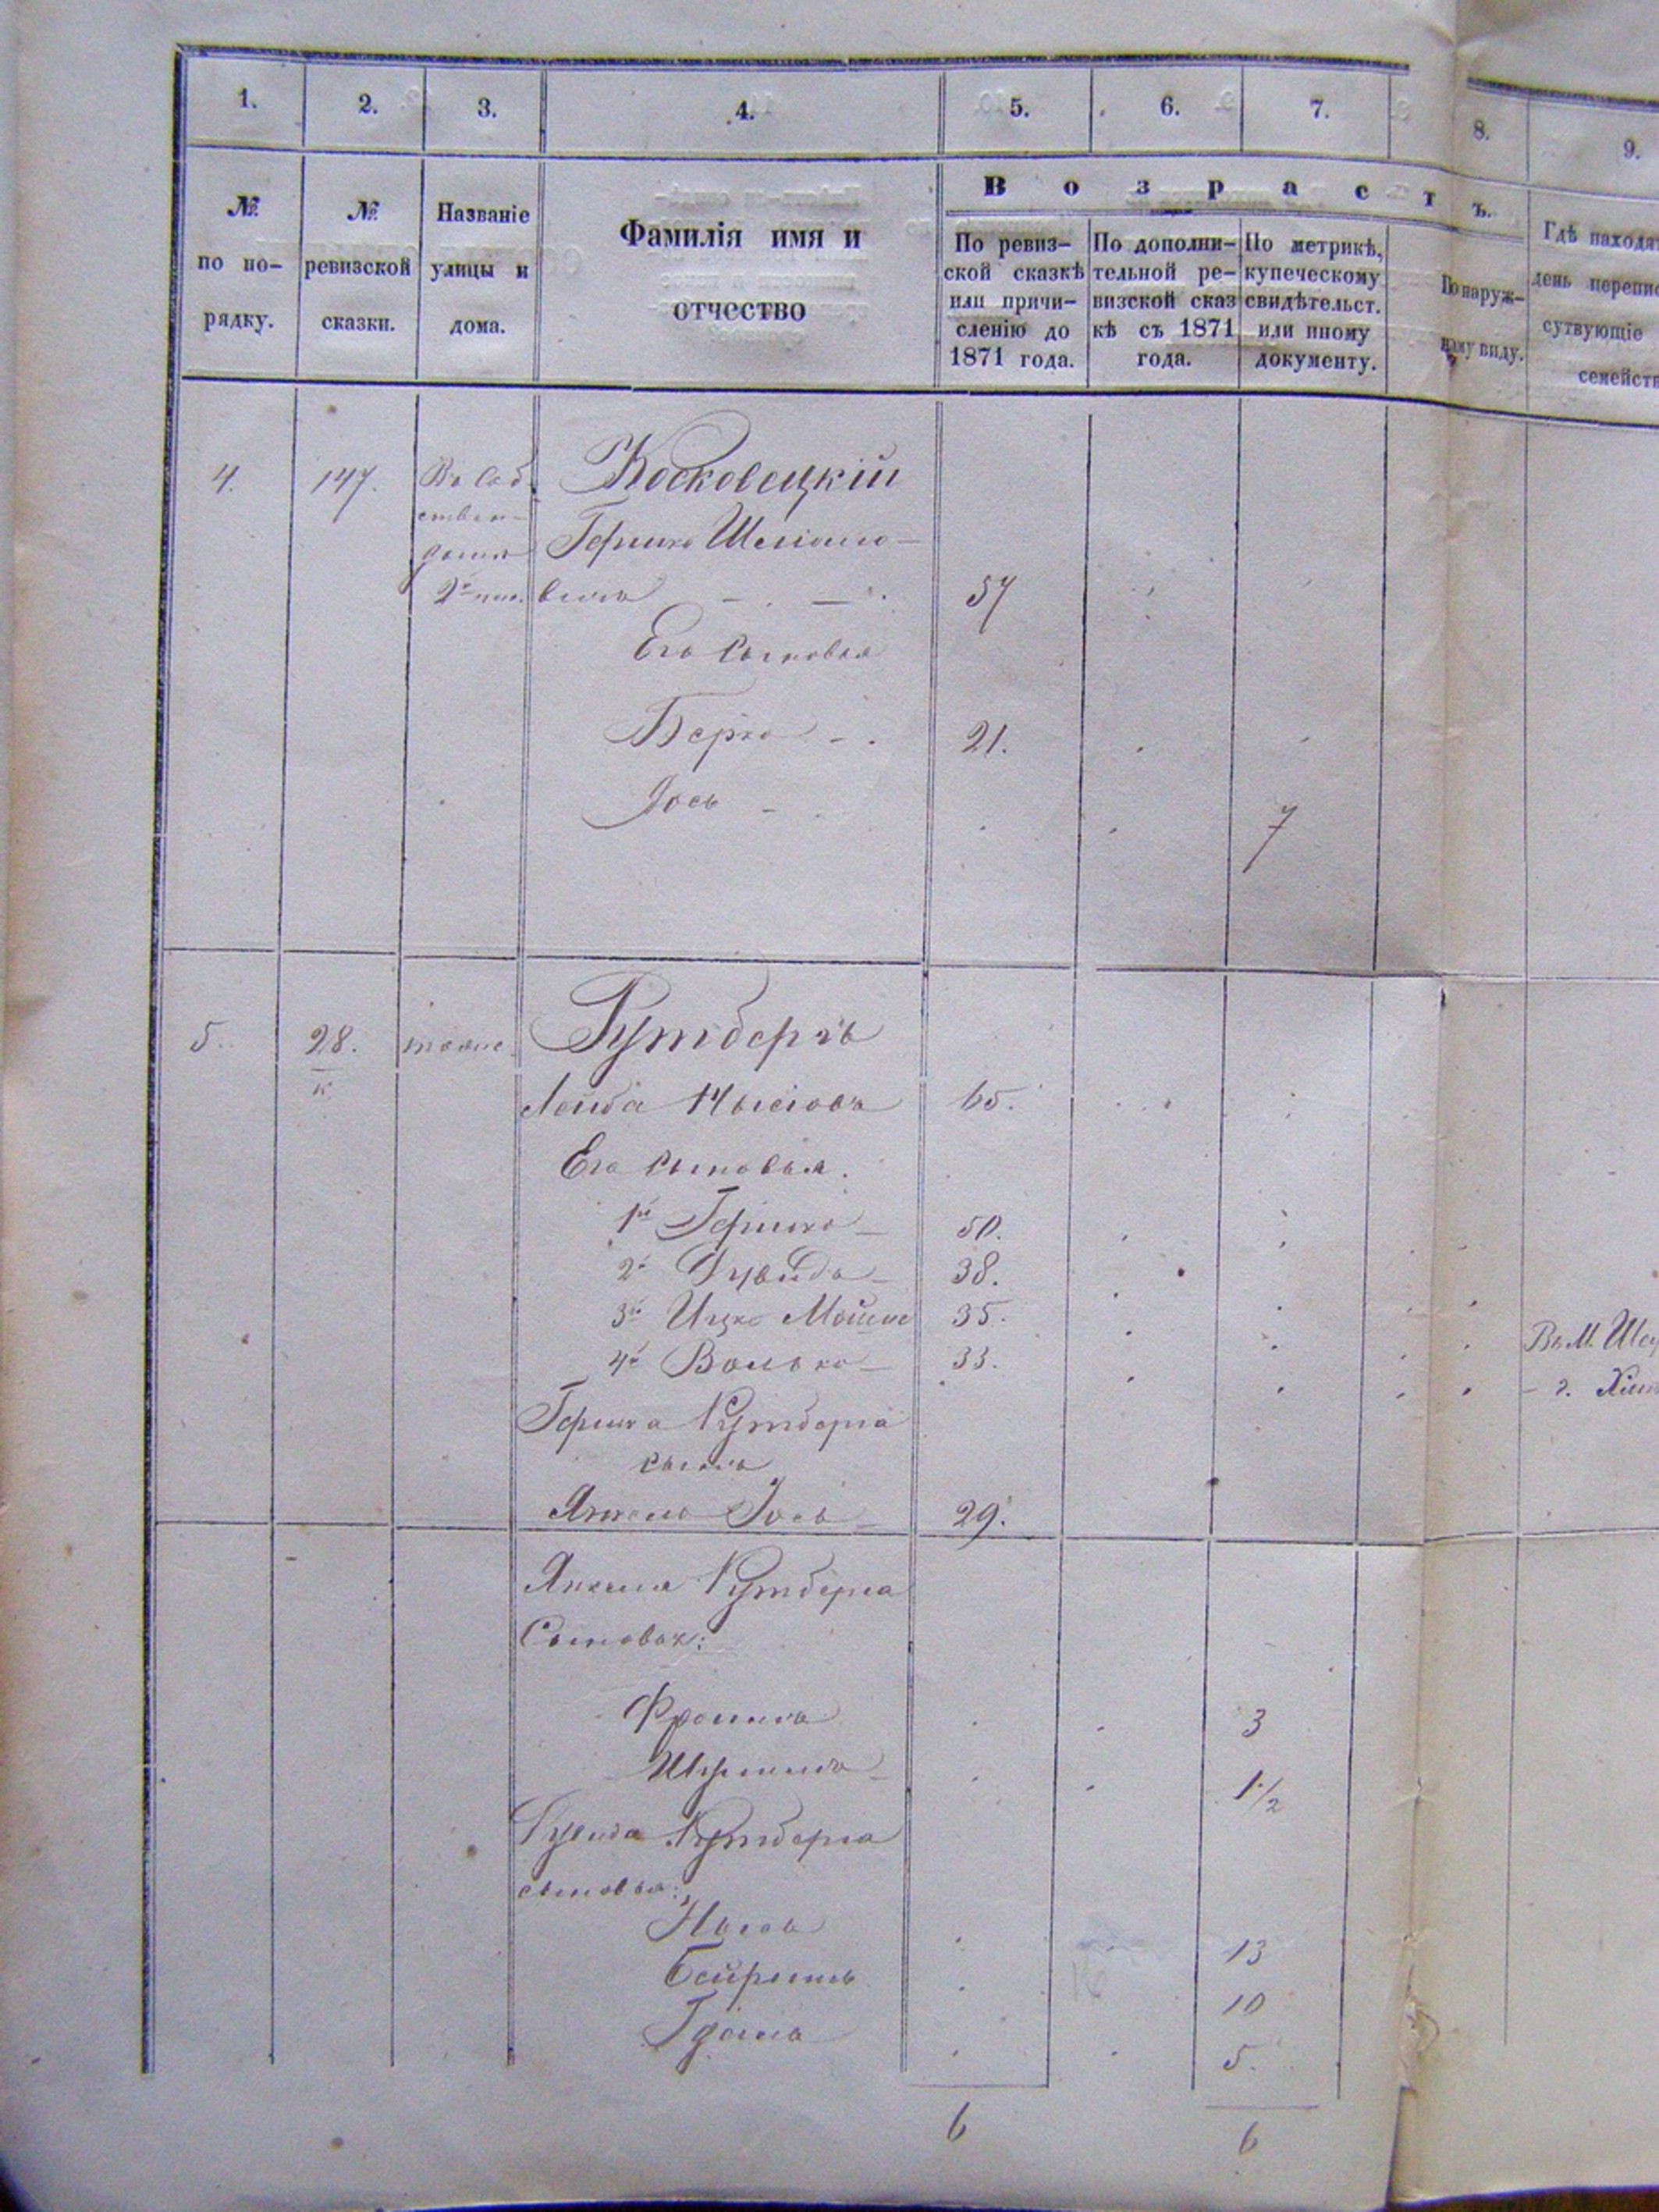 1.
2.
3.
4.
5.
6.
7.
8.
9.
№
по по-
рядку.
№
ревизской
сказки.
Названіе
улицы и
дома.
Фамилія имя и
отчество
В о з р а с т ъ.
По ревиз-
ской сказкѣ
или причи-
сленію до
1871 года.
По дополни-
тельной ре-
визской сказ
кѣ съ 1871
года.
По метрикѣ,
купеческому
свидѣтельст.
или иному
документу.
По наруж-
ному виду.
Гдѣ находя
день перепис
сутвующіе
семейств
4. 147. Въ соб Косковецкій
ствен- Гершко Шліомо-
домѣ
2й вичъ 57
Его сыновья
Берко 21.
Іось 7
5. 28. тоже Гутбергъ
к
Лейба Мысіовъ 65.
Его сыновья.
1й Гершко 50.
2й Дувидъ 38.
3й Ицко Мошко 35. Въ М.
4й Волько 33. г.
Гершка Гутберга
сынъ
Янкель Іось 29.
Янкеля Гутберга
Сыновья:
Фроимъ 3
1 1/2
Дувида Гутберга
сыновья:
13
10
5.
6 6